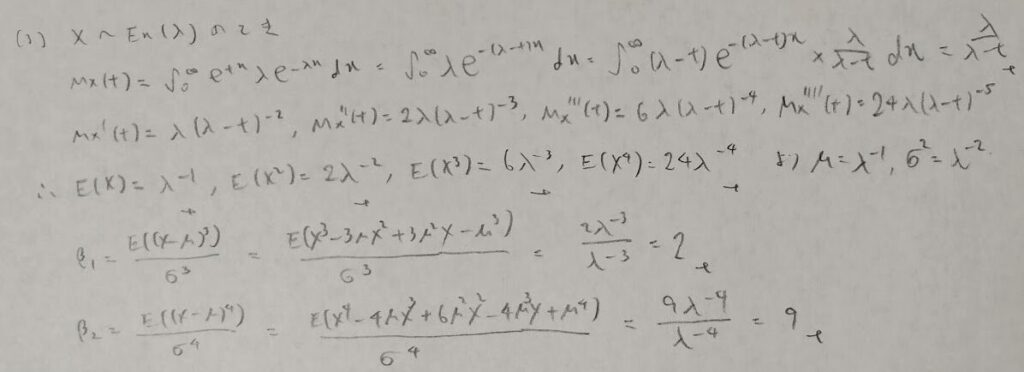 (1) X ~ Ex(λ) のとき
Mx(t) = ∫₀^∞ e^{tx} λe^{-λx} dx = ∫₀^∞ λe^{-(λ-t)x} dx = ∫₀^∞ (λ-t) e^{-(λ-t)x} × λ/(λ-t) dx = λ/(λ-t)
Mx'(t) = λ(λ-t)^{-2}, Mx''(t) = 2λ(λ-t)^{-3}, Mx'''(t) = 6λ(λ-t)^{-4}, Mx''''(t) = 24λ(λ-t)^{-5}
∴ E(X) = λ^{-1}, E(X²) = 2λ^{-2}, E(X³) = 6λ^{-3}, E(X⁴) = 24λ^{-4} より μ = λ^{-1}, σ² = λ^{-2}.
β₁ = E((X-μ)³)/σ³ = E(X³-3μX²+3μ²X-μ³)/σ³ = 2λ^{-3}/λ^{-3} = 2
β₂ = E((X-μ)⁴)/σ⁴ = E(X⁴-4μX³+6μ²X²-4μ³X+μ⁴)/σ⁴ = 9λ^{-4}/λ^{-4} = 9